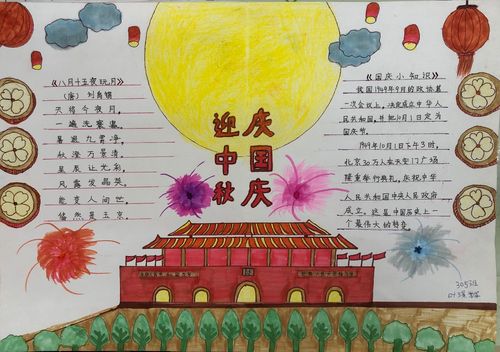 迎庆
中国
秋庆
《八月十五夜玩月》
(唐) 刘禹锡
天将今夜月，
一遍洗寰瀛。
暑退九霄净，
秋澄万景清。
星辰让光彩，
风露发晶英。
能变人间世，
翛然是玉京。
《国庆小知识》
我国1949年9月的政协第
一次会议上，决定成立中华人
民共和国，并把10月1日定为
国庆节。
1949年10月1日下午3时，
北京30万人在天安门广场
隆重举行典礼，庆祝中华
人民共和国中央人民政府
成立，这是中国历史上一
个最伟大的转变。
305班